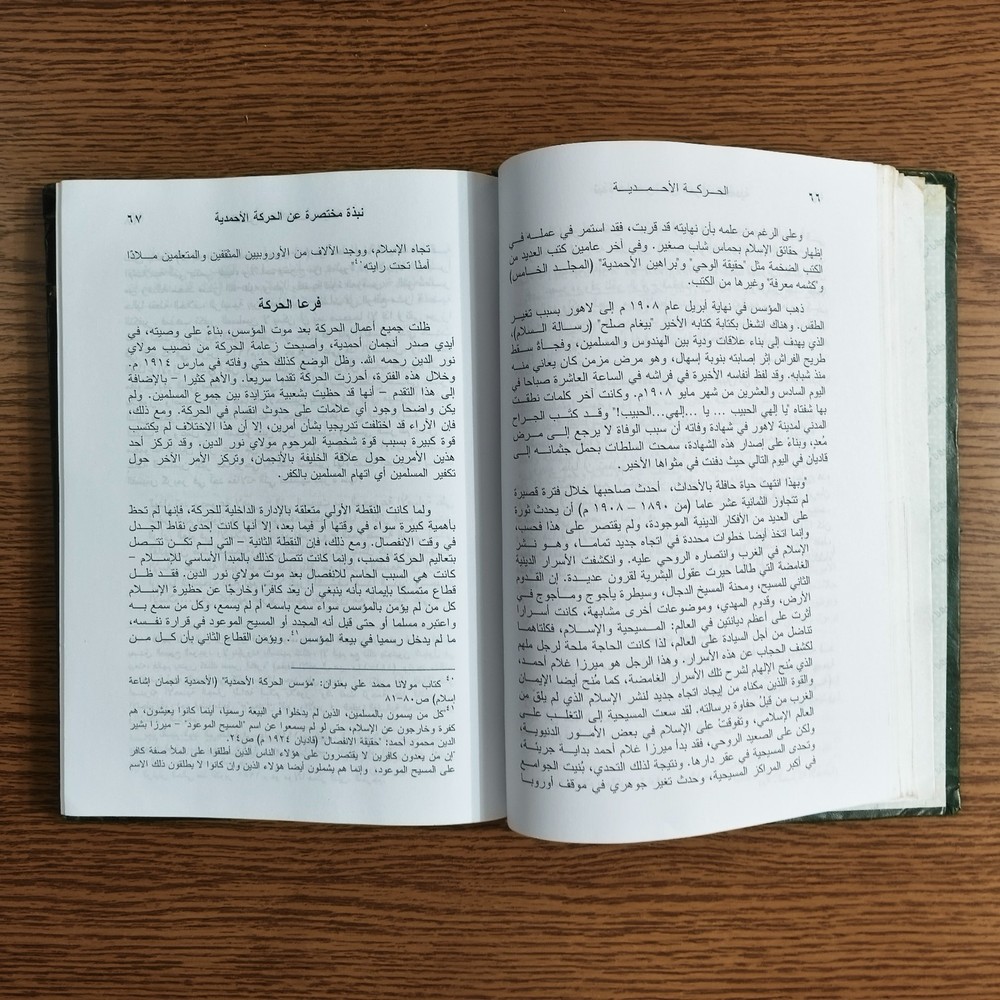 ٦٦
الحركة الأحمدية
وعلى الرغم من علمه بأن نهايته قد قربت، فقد استمر في عمله في
إظهار حقائق الإسلام بحماس شاب صغير. وفي آخر عامين كتب العديد من
الكتب الضخمة مثل "حقيقة الوحي" و"براهين الأحمدية" (المجلد الخامس)
و"كشمه معرفة" وغيرها من الكتب.
ذهب المؤسس في نهاية أبريل عام ١٩٠٨ م إلى لاهور بسبب تغير
الطقس. وهناك انشغل بكتابة كتابه الأخير "بيغام صلح" (رسالة السلام)،
الذي يهدف إلى بناء علاقات ودية بين الهندوس والمسلمين، وفجأة سقط
طريح الفراش إثر إصابته بنوبة إسهال، وهو مرض مزمن كان يعاني منه
منذ شبابه. وقد لفظ أنفاسه الأخيرة في فراشه في الساعة العاشرة صباحا في
اليوم السادس والعشرين من شهر مايو ١٩٠٨م. وكانت آخر كلمات نطقت
بها شفتاه "يا إلهي الحبيب ... يا ...إلهي...الحبيب!" وقد كتب الجراح
المدني لمدينة لاهور في شهادة وفاته أن سبب الوفاة لا يرجع إلى مرض
مُعد، وبناءً على إصدار هذه الشهادة، سمحت السلطات بحمل جثمانه إلى
قاديان في اليوم التالي حيث دفنت في مثواها الأخير.
"وبهذا انتهت حياة حافلة بالأحداث، أحدث صاحبها خلال فترة قصيرة
لم تتجاوز الثمانية عشر عاما (من ١٨٩٠ – ١٩٠٨ م) أن يحدث ثورة
على العديد من الأفكار الدينية الموجودة، ولم يقتصر على هذا فحسب،
وإنما اتخذ أيضا خطوات محددة في اتجاه جديد تماما، وهو نشر
الإسلام في الغرب وانتصاره الروحي عليه. وانكشفت الأسرار الدينية
الغامضة التي طالما حيرت عقول البشرية لقرون عديدة. إن القدوم
الثاني للمسيح، ومحنة المسيخ الدجال، وسيطرة يأجوج ومأجوج في
الأرض، وقدوم المهدي، وموضوعات أخرى مشابهة، كانت أسرارا
أثرت على أعظم ديانتين في العالم: المسيحية والإسلام، فكلتاهما
تناضل من أجل السيادة على العالم، لذا كانت الحاجة ملحة لرجل ملهم
لكشف الحجاب عن هذه الأسرار. وهذا الرجل هو ميرزا غلام أحمد،
الذي مُنح الإلهام لشرح تلك الأسرار الغامضة، كما مُنح أيضا الإيمان
والقوة اللذين مكناه من إيجاد اتجاه جديد لنشر الإسلام الذي لم يلق من
الغرب من قبلُ حفاوة برسالته، لقد سعت المسيحية إلى التغلب على
العالم الإسلامي، وتفوقت على الإسلام في بعض الأمور الدنيوية،
ولكن على الصعيد الروحي، فقد بدأ ميرزا غلام أحمد بداية جريئة،
وتحدى المسيحية في عقر دارها. ونتيجة لذلك التحدي، بُنيت الجوامع
في أكبر المراكز المسيحية، وحدث تغير جوهري في موقف أوروبا
نبذة مختصرة عن الحركة الأحمدية
٦٧
تجاه الإسلام، ووجد الآلاف من الأوروبيين المثقفين والمتعلمين ملاذًا
آمنًا تحت رايته"٤٠
فرعا الحركة
ظلت جميع أعمال الحركة بعد موت المؤسس، بناءً على وصيته، في
أيدي صدر أنجمان أحمدية، وأصبحت زعامة الحركة من نصيب مولاي
نور الدين رحمه الله. وظل الوضع كذلك حتى وفاته في مارس ١٩١٤ م.
وخلال هذه الفترة، أحرزت الحركة تقدما سريعا. والأهم كثيرا – بالإضافة
إلى هذا التقدم – أنها قد حظيت بشعبية متزايدة بين جموع المسلمين. ولم
يكن واضحا وجود أي علامات على حدوث انقسام في الحركة. ومع ذلك،
فإن الآراء قد اختلفت تدريجيا بشأن أمرين، إلا أن هذا الاختلاف لم يكتسب
قوة كبيرة بسبب قوة شخصية المرحوم مولاي نور الدين. وقد تركز أحد
هذين الأمرين حول علاقة الخليفة بالأنجمان، وتركز الأمر الآخر حول
تكفير المسلمين أي اتهام المسلمين بالكفر.
ولما كانت النقطة الأولي متعلقة بالإدارة الداخلية للحركة، فإنها لم تحظ
بأهمية كبيرة سواء في وقتها أو فيما بعد، إلا أنها كانت إحدى نقاط الجدل
في وقت الانفصال. ومع ذلك، فإن النقطة الثانية – التي لم تكن تتصل
بتعاليم الحركة فحسب، وإنما كانت تتصل كذلك بالمبدأ الأساسي للإسلام –
كانت هي السبب الحاسم للانفصال بعد موت مولاي نور الدين. فقد ظل
قطاع متمسكا بإيمانه بأنه ينبغي أن يعد كافرًا وخارجًا عن حظيرة الإسلام
كل من لم يؤمن بالمؤسس سواء سمع باسمه أم لم يسمع، وكل من سمع به
واعتبره مسلما أو حتى قيل أنه المجدد أو المسيح الموعود في قرارة نفسه،
ما لم يدخل رسميا في بيعة المؤسس٤١. ويؤمن القطاع الثاني بأن كل من
٤٠ كتاب مولانا محمد علي بعنوان: "مؤسس الحركة الأحمدية" (الأحمدية أنجمان إشاعة
إسلام) ص٨٠–٨١
٤١"كل من يسمون بالمسلمين، الذين لم يدخلوا في البيعة رسميا، أينما كانوا يعيشون، هم
كفرة وخارجون عن الإسلام، حتى لو لم يسمعوا عن اسم "المسيح الموعود" – ميرزا بشير
الدين محمود أحمد: "حقيقة الانفصال" (قاديان ١٩٢٤ م) ص٢٤.
"إن من يعدون كافرين لا يقتصرون على هؤلاء الناس الذين أطلقوا على الملأ صفة كافر
على المسيح الموعود، وإنما هم يشملون أيضا هؤلاء الذين وإن كانوا لا يطلقون ذلك الاسم